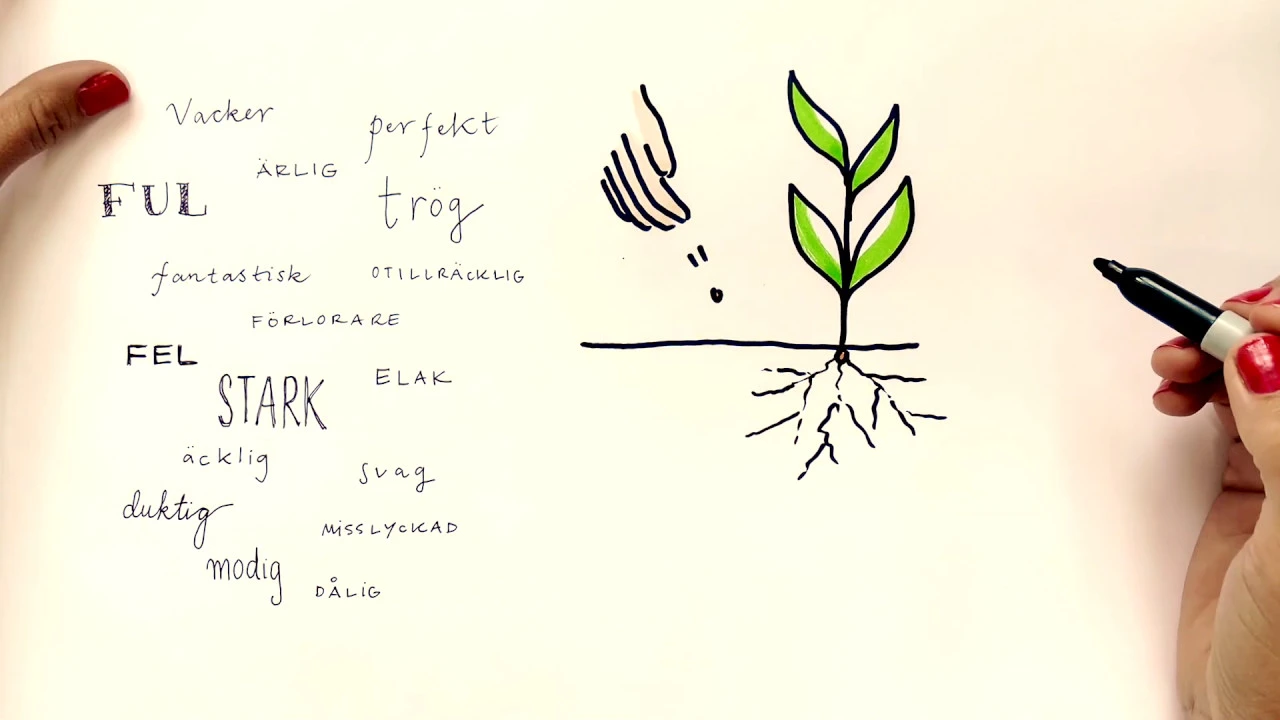 Vacker
perfekt
ÄRLIG
FUL
trög
fantastisk
OTILLRÄCKLIG
FÖRLORARE
FEL
STARK
ELAK
äcklig
svag
duktig
MISSLYCKAD
modig
DÅLIG